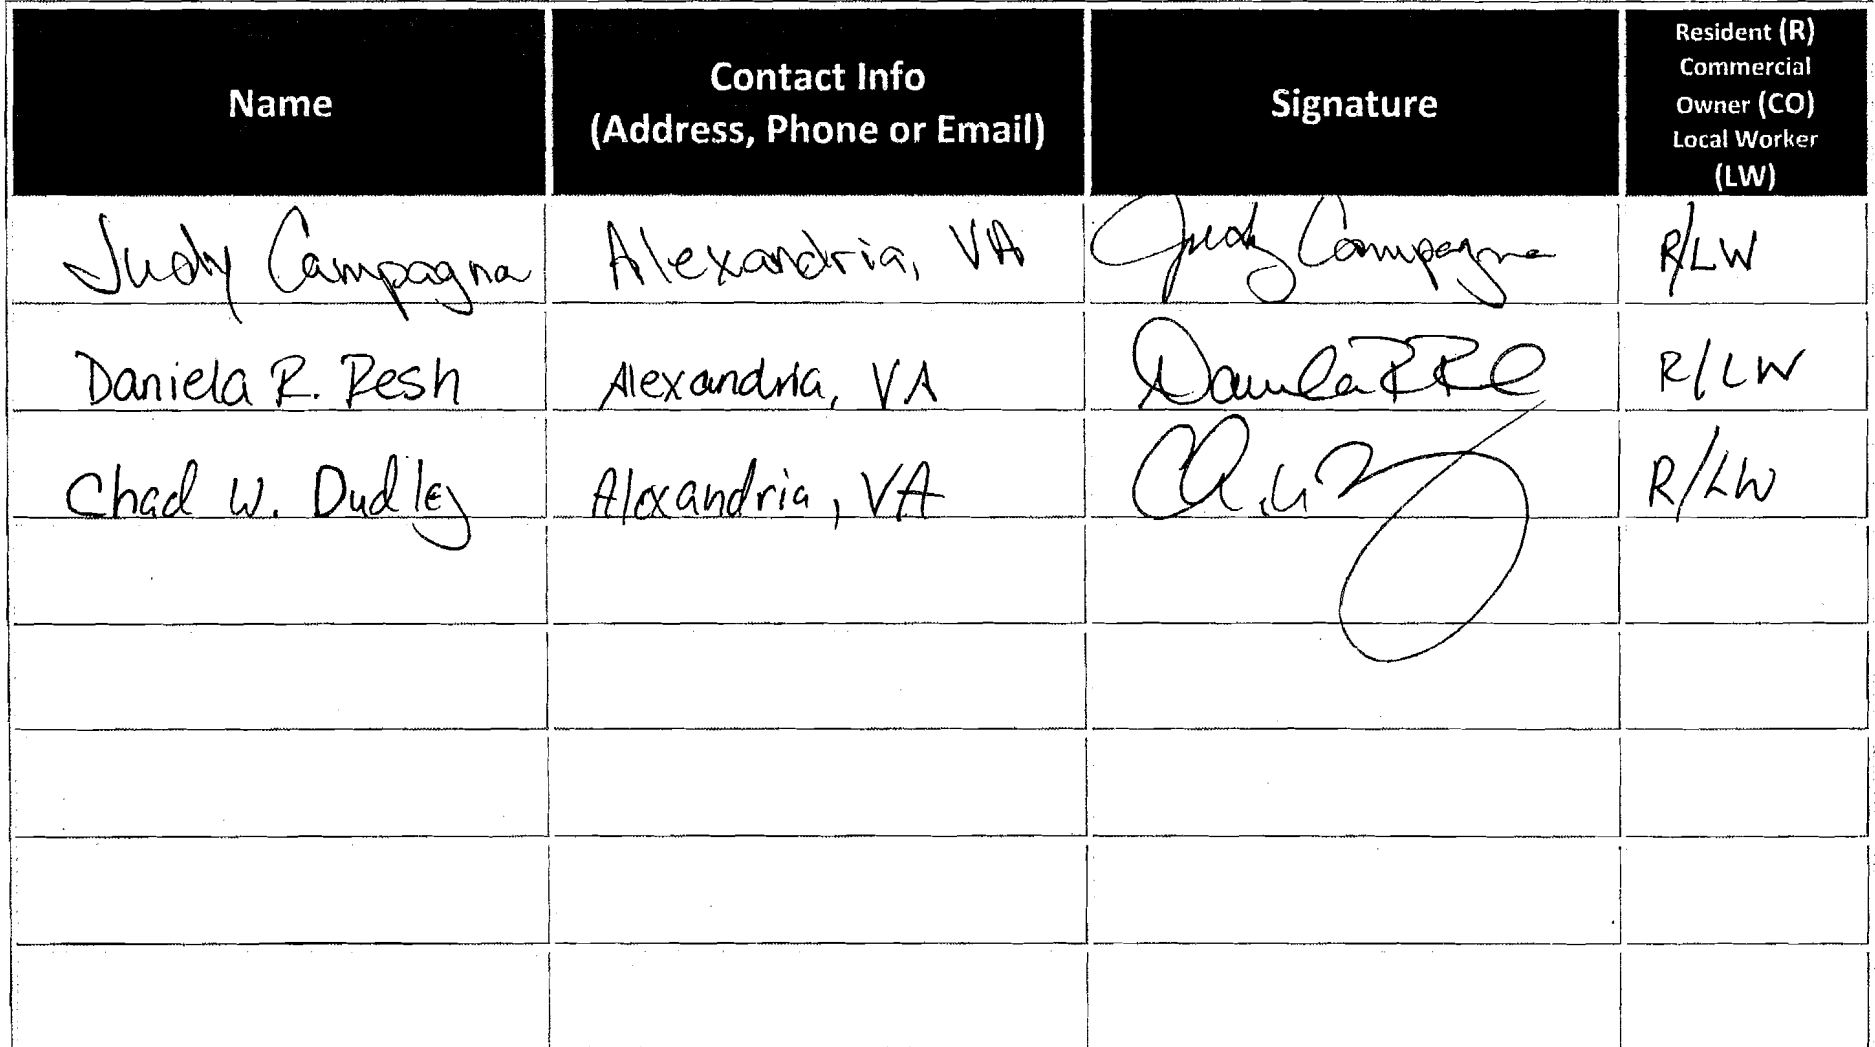 Name
Contact Info
(Address, Phone or Email)
Signature
Resident (R)
Commercial
Owner (CO)
Local Worker
(LW)
Judy Campagna Alexandria, VA Judy Campagna R/LW
Daniela R. Resh Alexandria, VA R/LW
Chad W. Dudley Alexandria, VA R/LW